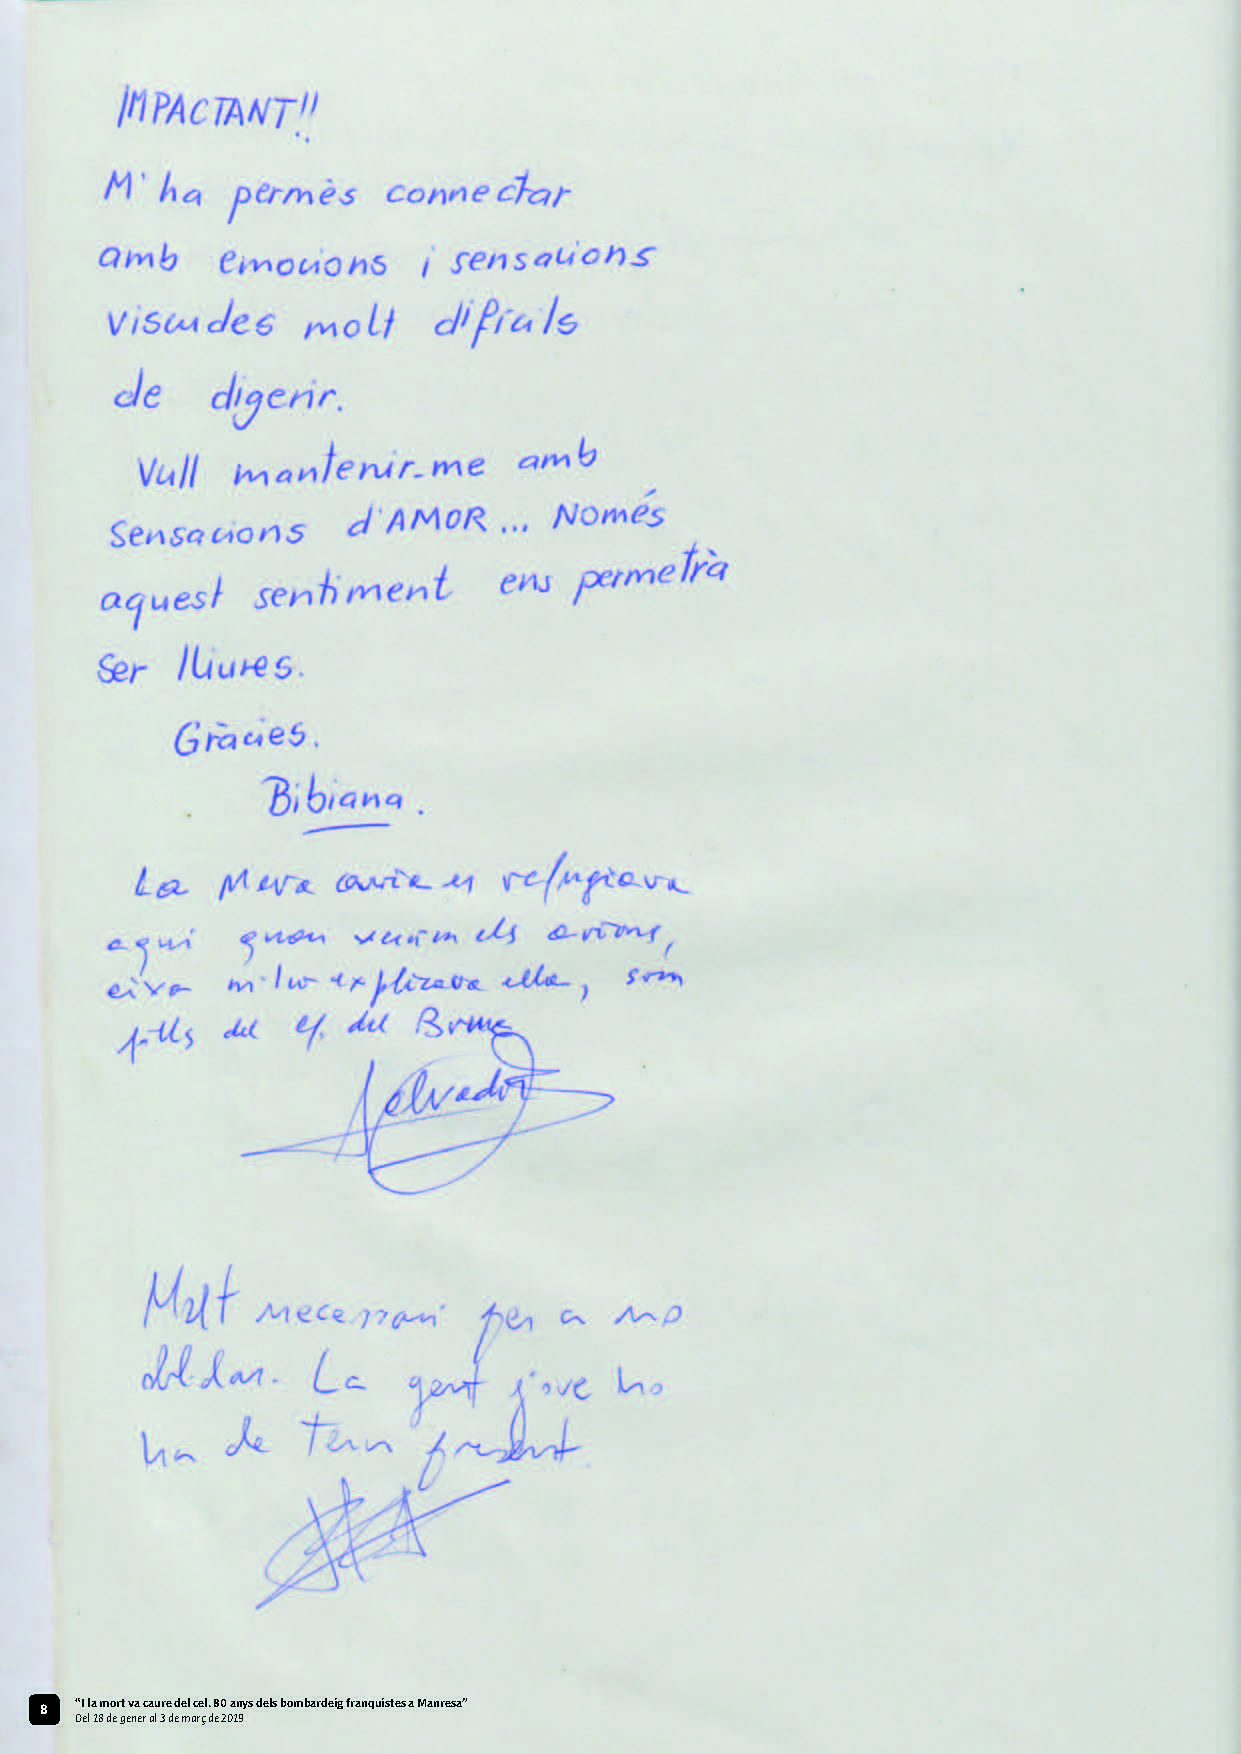 IMPACTANT!!
M'ha permès connectar
amb emocions i sensacions
viscudes molt difícils
de digerir.
Vull mantenir-me amb
sensacions d'AMOR... Només
aquest sentiment ens permetrà
ser lliures.
Gràcies.
Bibiana.
La Meva avia es refugiava
aqui quan venien els avions,
aixo m'ho explicava ella, som
fills del c/. del Bruc
Salvador
Molt necessari per a no
oblidar. La gent jove ho
ha de tenir present.
8
“I la mort va caure del cel. 80 anys dels bombardeig franquistes a Manresa”
Del 18 de gener al 3 de març de 2019